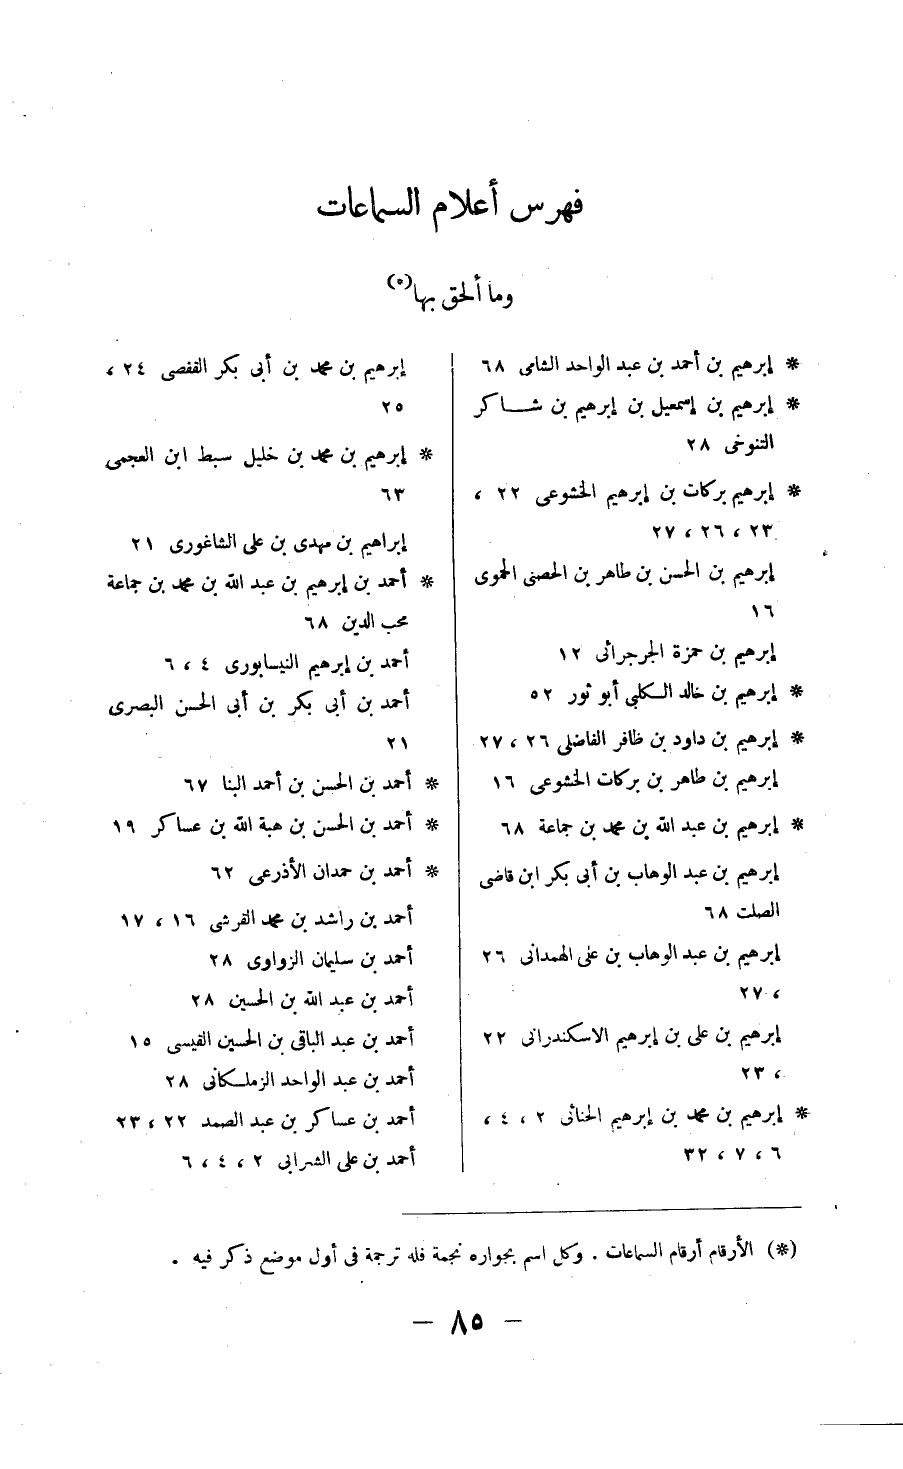 فهرس أعلام السماعات
وما ألحق بها(٥)
* إبرهيم بن أحمد بن عبد الواحد الشامى ٦٨
* إبرهيم بن إسمعيل بن إبرهيم بن شاكر
التنوخى ٢٨
* إبرهيم بركات بن إبرهيم الخشوعى ٢٢ ،
٢٣ ، ٢٦ ، ٢٧
إبرهيم بن الحسن بن طاهر بن الحصنى الحموى
١٦
إبرهيم بن حمزة الجرجرائى ١٢
* إبرهيم بن خالد الكلبي أبو ثور ٥٢
* إبرهيم بن داود بن ظافر الفاضلى ٢٦ ، ٢٧
إبرهيم بن طاهر بن بركات الخشوعى ١٦
* إبرهيم بن عبد الله بن محمد بن جماعة ٦٨
إبرهيم بن عبد الوهاب بن أبى بكر ابن قاضى
الصلت ٦٨
إبرهيم بن عبد الوهاب بن على الهمدانى ٢٦
، ٢٧
إبرهيم بن على بن إبرهيم الاسكندرانى ٢٢
، ٢٣
* إبرهيم بن محمد بن إبرهيم الحنائى ٢ ، ٤ ،
٦ ، ٧ ، ٣٢
إبرهيم بن محمد بن أبى بكر القفصى ٢٤ ،
٢٥
* إبرهيم بن محمد بن خليل سبط ابن العجمى
٦٣
إبراهيم بن مهدى بن على الشاغورى ٢١
* أحمد بن إبرهيم بن عبد الله بن محمد بن جماعة
محب الدين ٦٨
أحمد بن إبرهيم النيسابورى ٤ ، ٦
أحمد بن أبى بكر بن أبى الحسن البصرى
٢١
* أحمد بن الحسن بن أحمد البنا ٦٧
* أحمد بن الحسن بن هبة الله بن عساكر ١٩
* أحمد بن حمدان الأذرعى ٦٢
أحمد بن راشد بن محمد القرشى ١٦ ، ١٧
أحمد بن سليمان الزواوى ٢٨
أحمد بن عبد الله بن الحسين ٢٨
أحمد بن عبد الباقى بن الحسين القيسى ١٥
أحمد بن عبد الواحد الزملكانى ٢٨
أحمد بن عساكر بن عبد الصمد ٢٢ ، ٢٣
أحمد بن على الشرابى ٢ ، ٤ ، ٦
(*) الأرقام أرقام السماعات . وكل اسم بجواره نجمة فله ترجمة فى أول موضع ذكر فيه .
— ٨٥ —